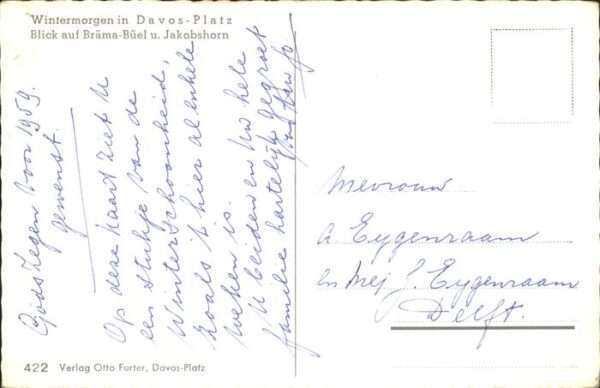 Wintermorgen in Davos-Platz
Blick auf Bräma-Büel u. Jakobshorn
Gods zegen voor 1959
gewenst.
Op deze kaart ziet U
een stukje van de
Winterschoonheid,
zoals 't hier al enkele
weken is.
U beiden en Uw hele
familie hartelijk gegroet
Mevrouw
A. Eygenraam
en Mej. J. Eygenraam
Delft.
422 Verlag Otto Furter, Davos-Platz